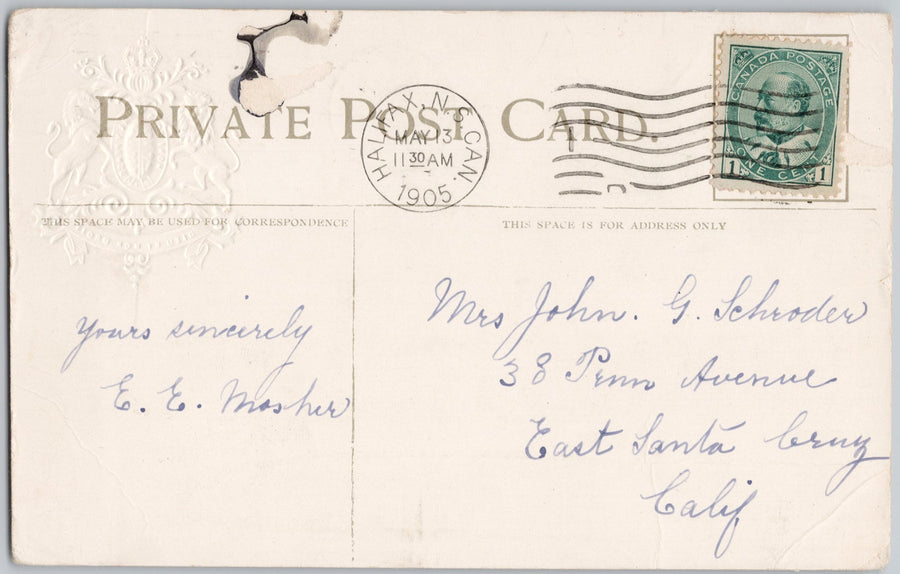 PRIVATE POST CARD.
HALIFAX, N.S. CAN.
MAY 13
11 30 AM
1905
CANADA POSTAGE
1 ONE CENT 1
THIS SPACE MAY BE USED FOR CORRESPONDENCE
THIS SPACE IS FOR ADDRESS ONLY
yours sincirely
E. E. Mosher
Mrs John. G. Schroder
38 Penn Avenue
East Santa Cruz
Calif